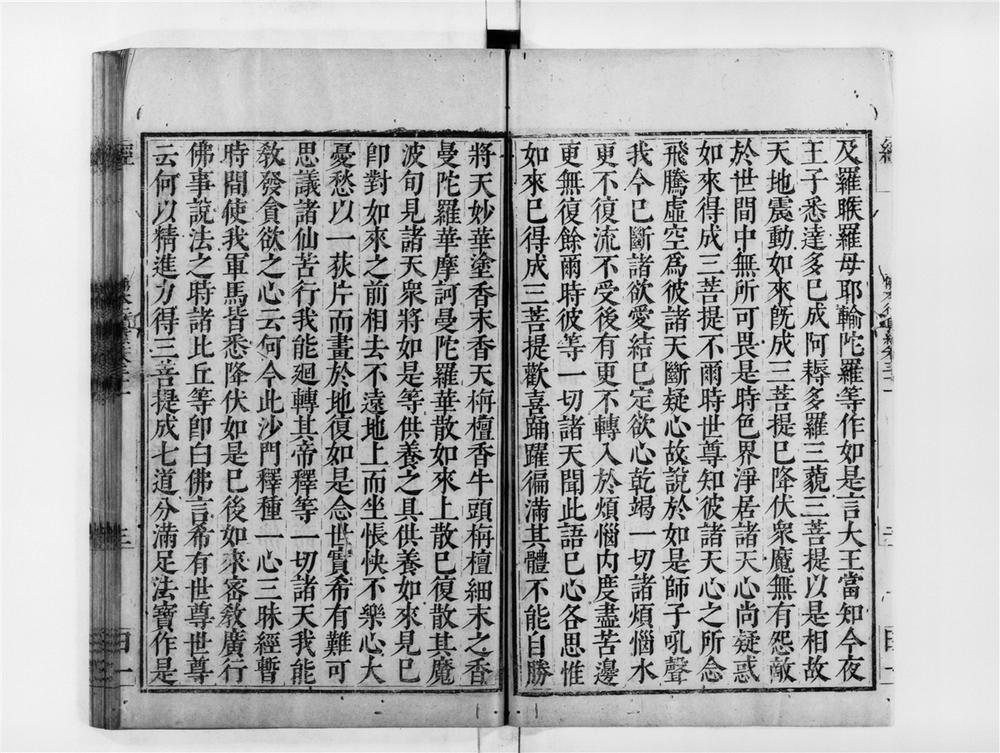 及羅睺羅母耶輸陀羅等作如是言大王當知今夜
王子悉達多已成阿耨多羅三藐三菩提以是相故
天地震動如來旣成三菩提已降伏衆魔無有怨敵
於世間中無所可畏是時色界淨居諸天心尚疑惑
如來得成三菩提不爾時世尊知彼諸天心之所念
飛騰虛空爲彼諸天斷疑心故說於如是師子吼聲
我今已斷諸欲愛結已定欲心乾竭一切諸煩惱水
更不復流不受後有更不轉入於煩惱內度盡苦邊
更無復餘爾時彼等一切諸天聞此語已心各思惟
如來已得成三菩提歡喜踊躍徧滿其體不能自勝
將天妙華塗香末香天栴檀香牛頭栴檀細末之香
曼陀羅華摩訶曼陀羅華散如來上散已復散其魔
波旬見諸天衆將如是等供養之具供養如來見已
卽對如來之前相去不遠地上而坐悵怏不樂心大
憂愁以一荻片而畫於地復如是念世實希有難可
思議諸仙苦行我能廻轉其帝釋等一切諸天我能
敎發貪欲之心云何今此沙門釋種一心三昧經暫
時間使我軍馬皆悉降伏如是已後如來密敎廣行
佛事說法之時諸比丘等卽白佛言希有世尊世尊
云何以精進力得三菩提成七道分滿足法寶作是